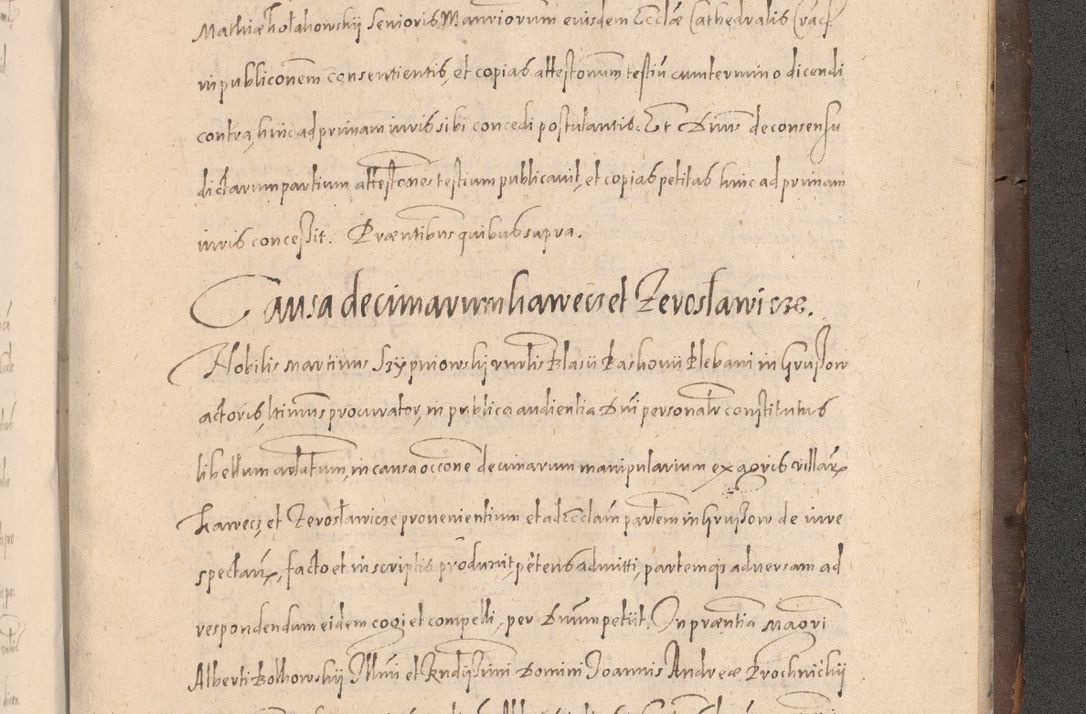 Mathiæ Kołakowskij Senioris Manriorum eiusdem Ecclæ Cathedralis Crac
in publiconem consentientis, et copias attestonum testiu cum termino dicendi
contra, hinc ad primam iuris sibi concedi postulantis. Et Dnus de consensu
dictarum partium attestones testium publicavit, et copias petitas hinc ad primam
iuris concessit. Præntibus quibus supra.
Causa decimarum hawecz et Zerosławicze.
Nobilis Martinus Szÿpniowskij Blasii Klebani in Gruszow
actoris, ltimus procurator, in publica audientia Dni personalr constitutus
libellum in causa occone decimarum manipularium ex agris villarx
hawecz, et Zerosławicze provenientium et ad Ecclam partem in Gruszow de iure
spectarx, facto et in scriptis produxit, petens admitti, partemqz adversam ad
respondendum eidem cogi et compelli, per Dnum petiit. In præntia Magri
Alberti Illmi et Rndissimi Domini Joannis Andreæ Prochnickij